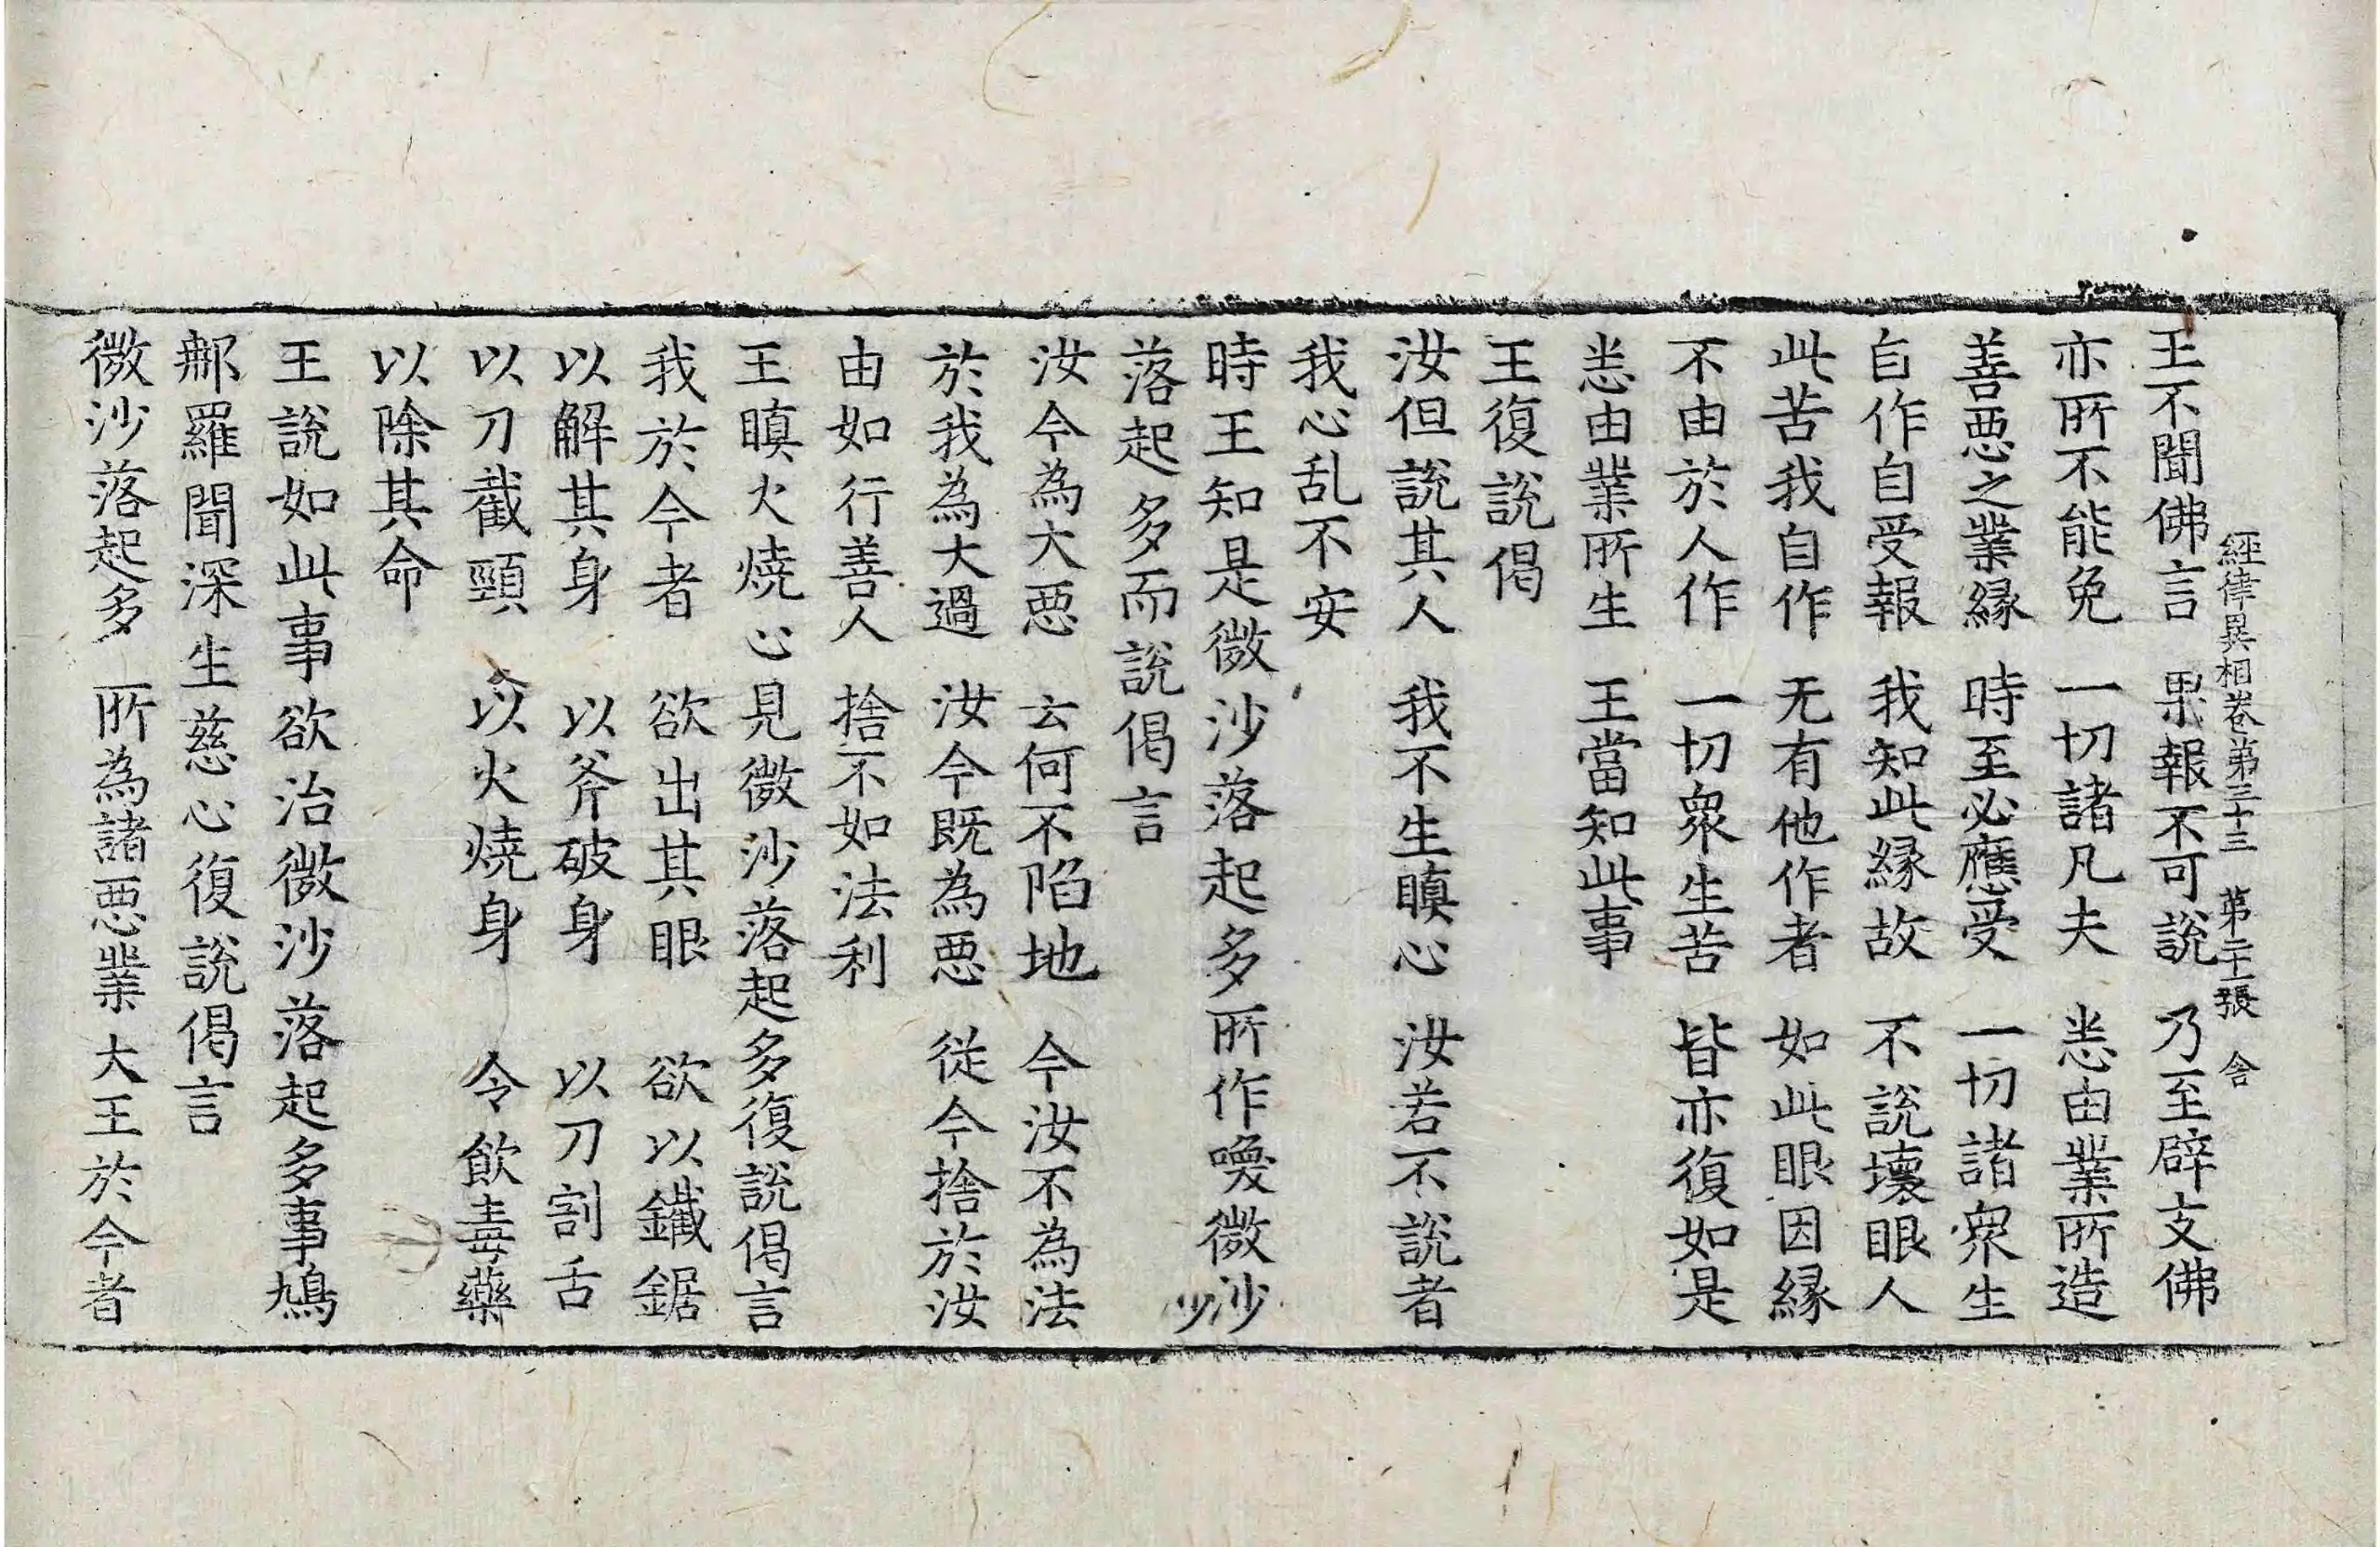 經律異相卷第三十三　第二十一張　舍
王不聞佛言　果報不可說　乃至辟支佛
亦所不能免　一切諸凡夫　恙由業所造
善悪之業縁　時至必應受　一切諸眾生
自作自受報　我知此縁故　不說壞眼人
此苦我自作　无有他作者　如此眼因縁
不由於人作　一切眾生苦　皆亦復如是
恙由業所生　王當知此事
王復說偈
汝但說其人　我不生瞋心　汝若不說者
我心乱不安
時王知是微沙落起多所作喚微沙
落起多而說偈言
汝今為大悪　云何不陷地　今汝不為法
於我為大過　汝今既為悪　從今捨於汝
由如行善人　捨不如法利
王瞋火燒心見微沙落起多復說偈言
我於今者　欲出其眼　欲以鐵鋸
以解其身　以斧破身　以刀割舌
以刀截頸　以火燒身　令飲毒藥
以除其命
王說如此事欲治微沙落起多事鳩
郍羅聞深生慈心復說偈言
微沙落起多　所為諸悪業　大王於今者